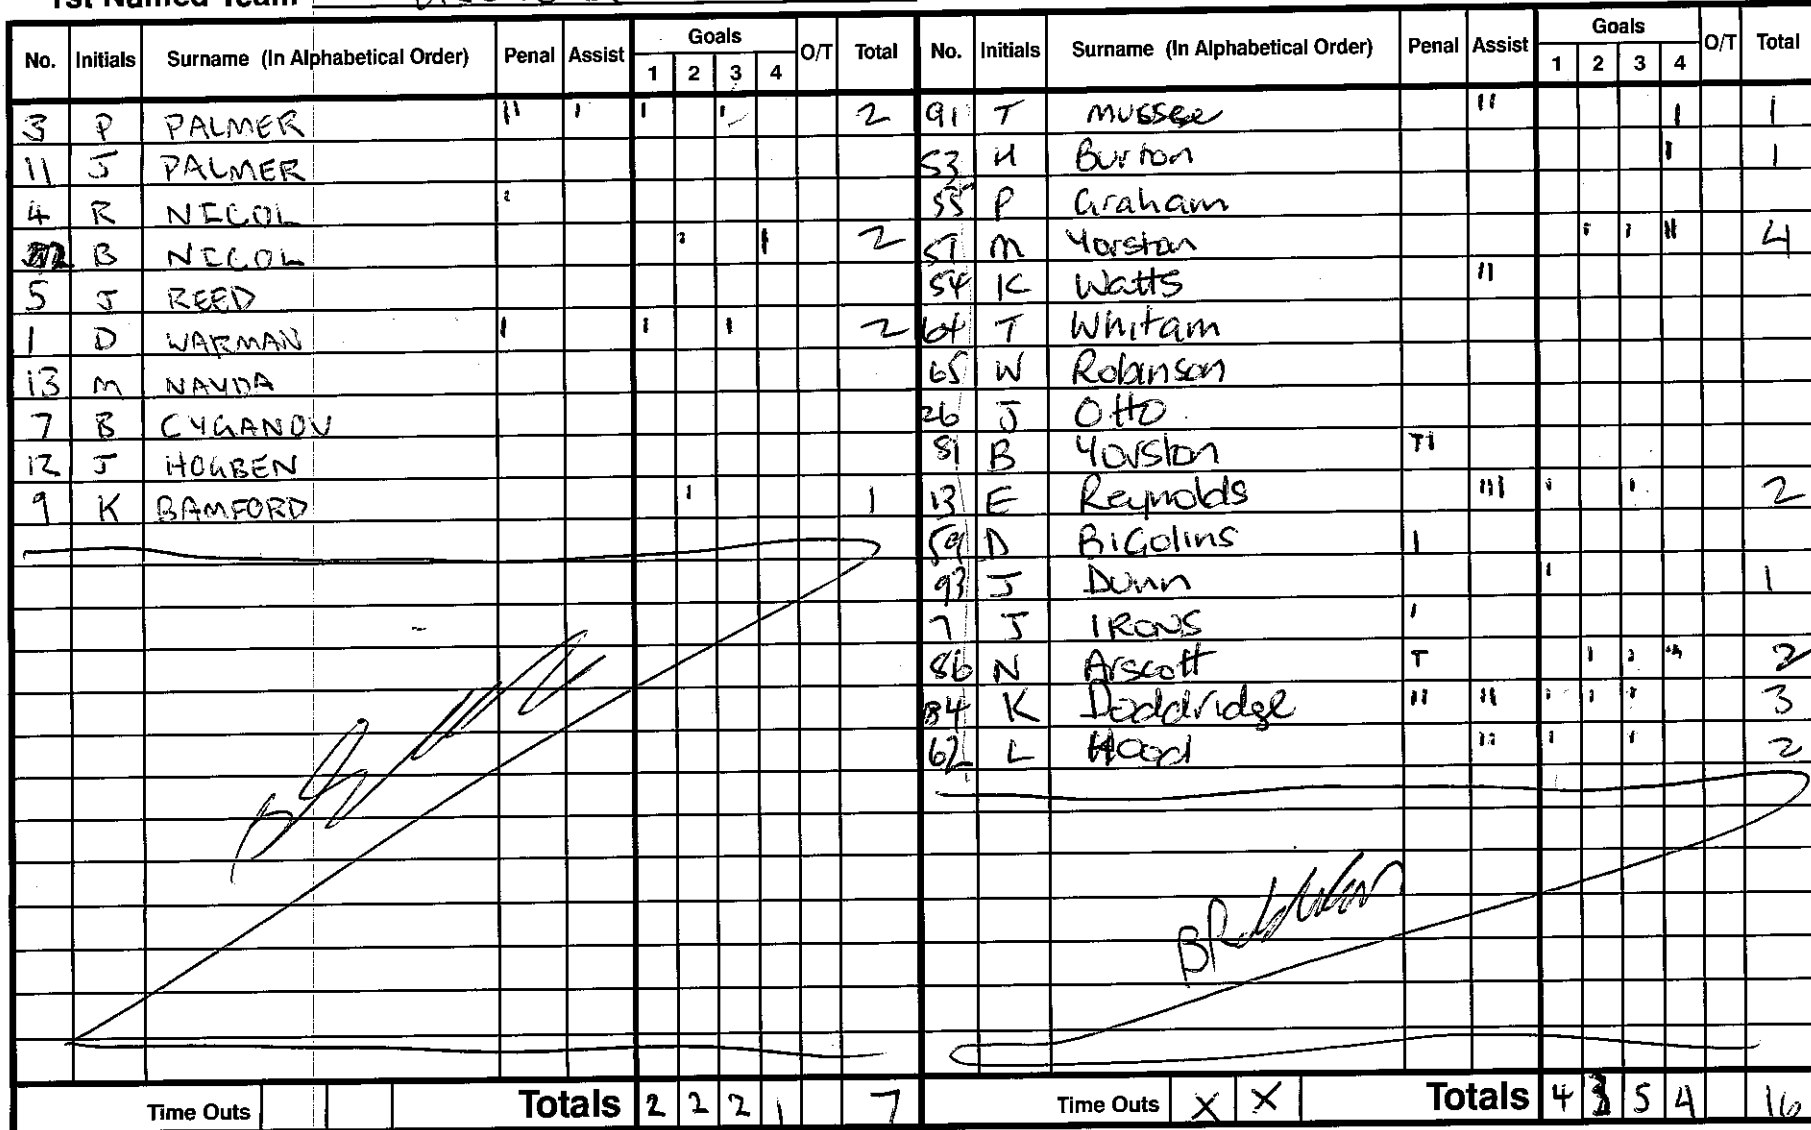 1st Named Team
No. Initials Surname (In Alphabetical Order) Penal Assist Goals 1 2 3 4 O/T Total
3 P PALMER 11 1 1 1 2
11 J PALMER
4 R NICOL 1
B NICOL 1 1 2
5 J REED
1 D WARMAN 1 1 1 2
13 M NAVDA
7 B CYGANOV
12 J HOGBEN
9 K BAMFORD 1 1
Time Outs Totals 2 2 2 1 7
No. Initials Surname (In Alphabetical Order) Penal Assist Goals 1 2 3 4 O/T Total
91 T Mussee 11 1 1
53 H Burton 1 1
55 P Graham
57 M Yorston 1 1 11 4
54 K Watts 11
64 T Whitam
65 W Robinson
26 J Otto
81 B Yorston T1
13 E Reynolds 111 1 1 2
59 D BiGolins 1
93 J Dunn 1 1
7 J IRONS 1
86 N Arscott T 1 1 2
84 K Doddridge 11 11 1 1 1 3
62 L Hood 11 1 1 2
Time Outs X X Totals 4 3 5 4 16